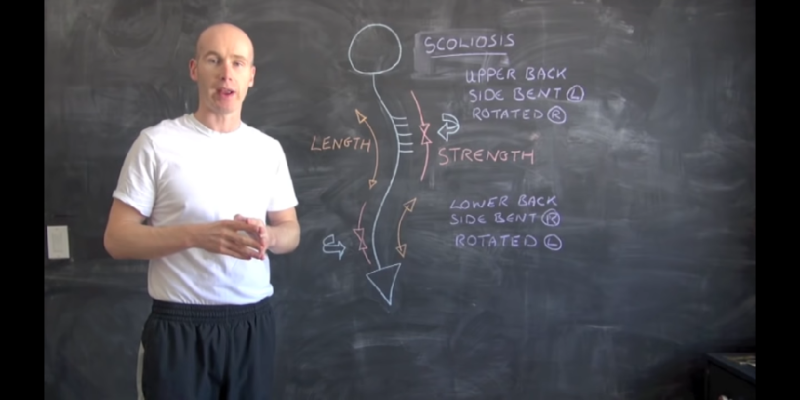 SCOLIOSIS
UPPER BACK
SIDE BENT L
ROTATED R
LENGTH
STRENGTH
LOWER BACK
SIDE BENT R
ROTATED L